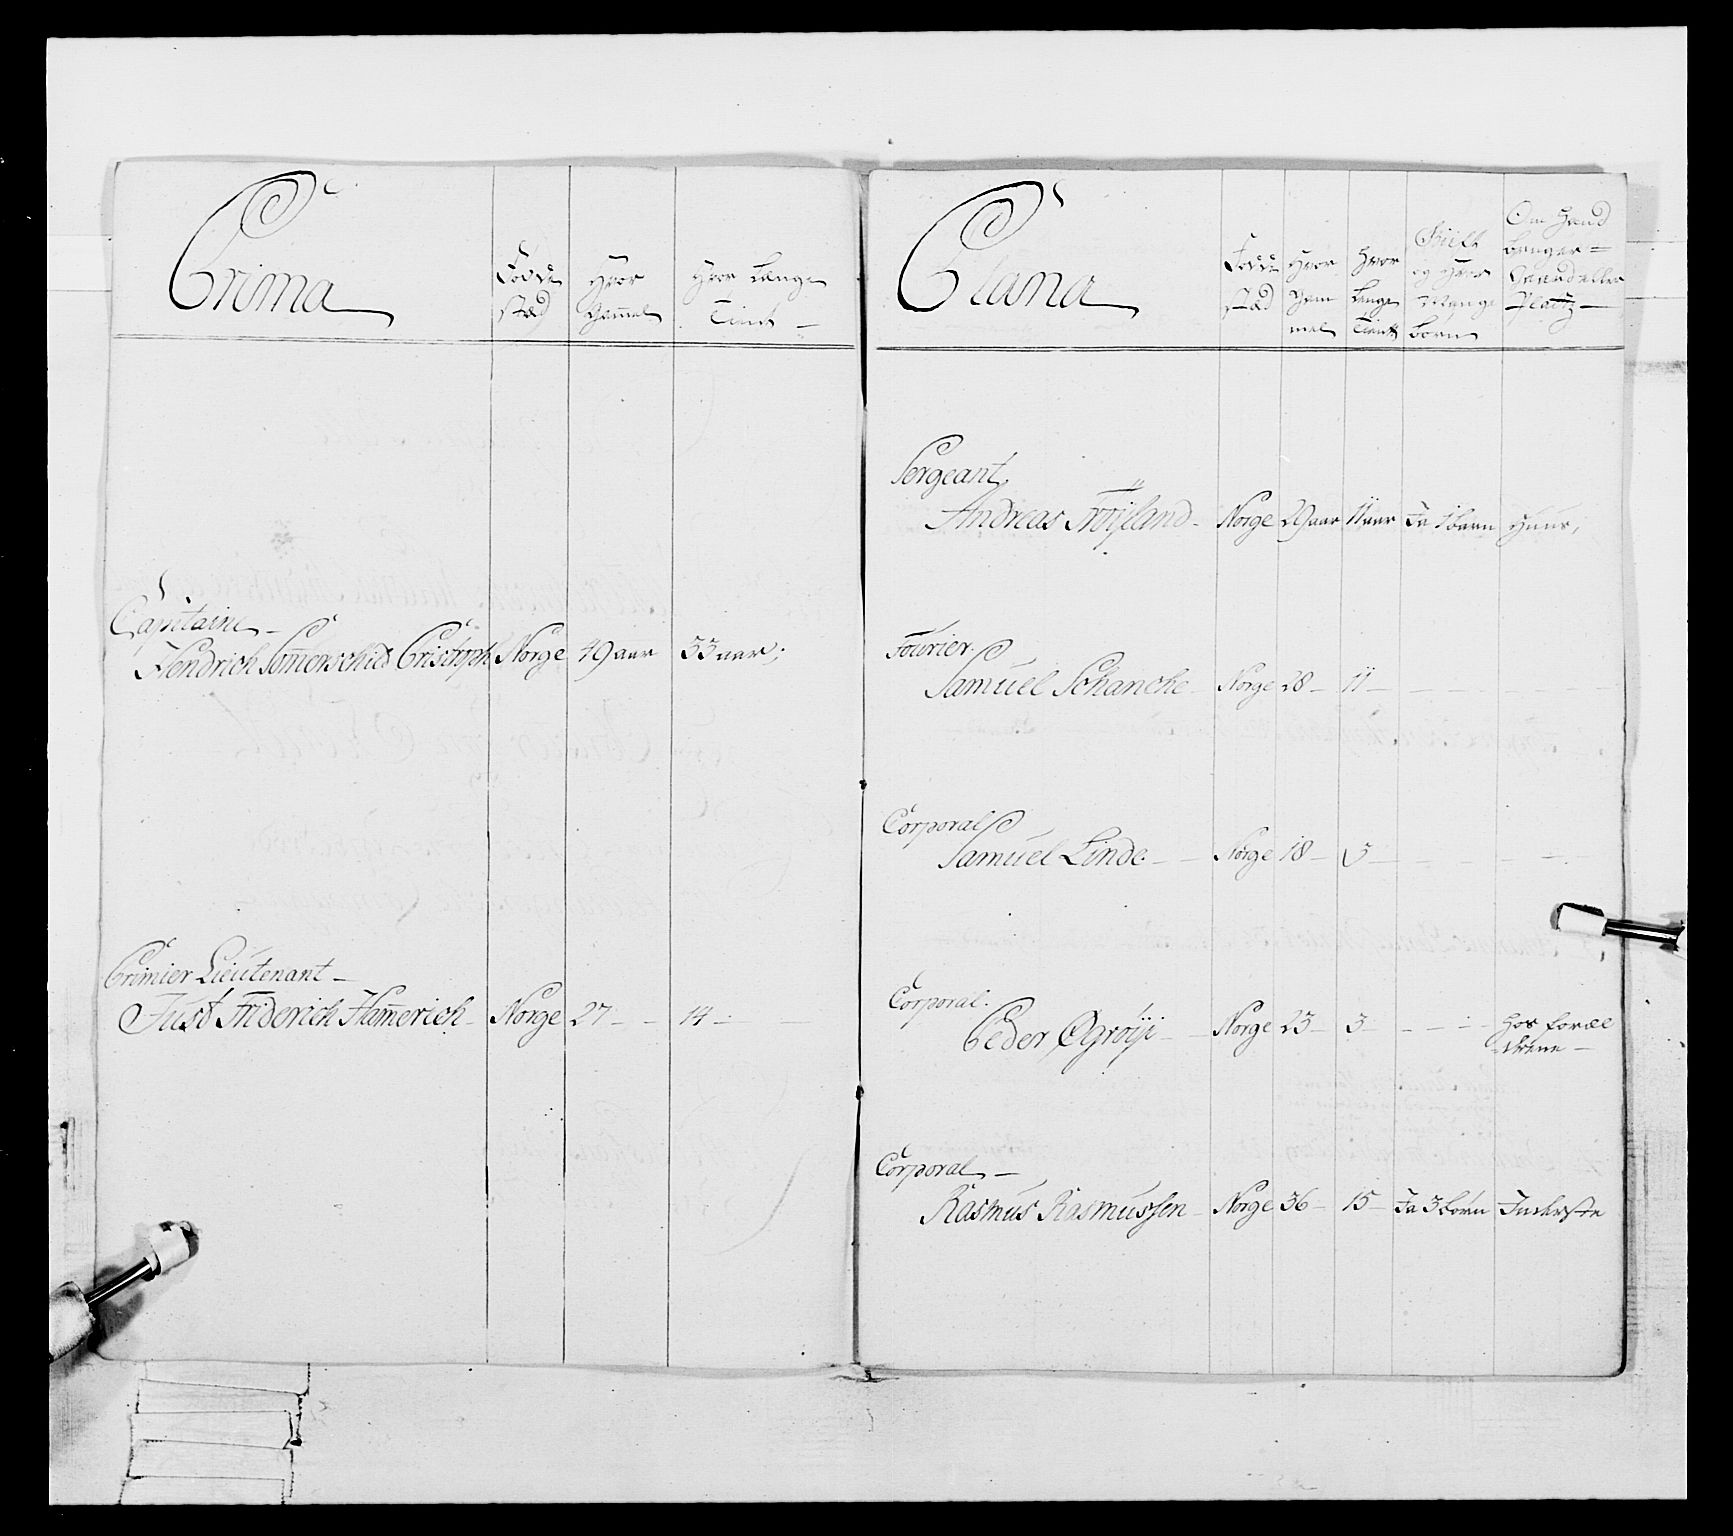 Prima
Fødde
stæd
Hvor
Gammel
Hvor Længe
Tient
Capitaine
Hendrich Sommerschield Cristoph Norge 49 aar 33 aar;
Primier Lieutenant
Just Friderich Hammerich Norge 27 14
Plana
Fødde
stæd
Hvor
Gam
mel
Hvor
Længe
Tient
Gift
og Hvor
Mange
børn
Om Hand
beuger
Gaard eller
Platz
Sergeant
Andreas Tröyland Norge 29 aar 11 aar Ja 1 barn Huus,
Fourier
Samuel Schancke Norge 28 11
Corporal
Samuel Linde Norge 18 3
Corporal
Peder Øgröy Norge 23 3 hos foræl
drene
Corporal
Rasmus Rasmussen Norge 36 15 Ja 3 børn Inderste